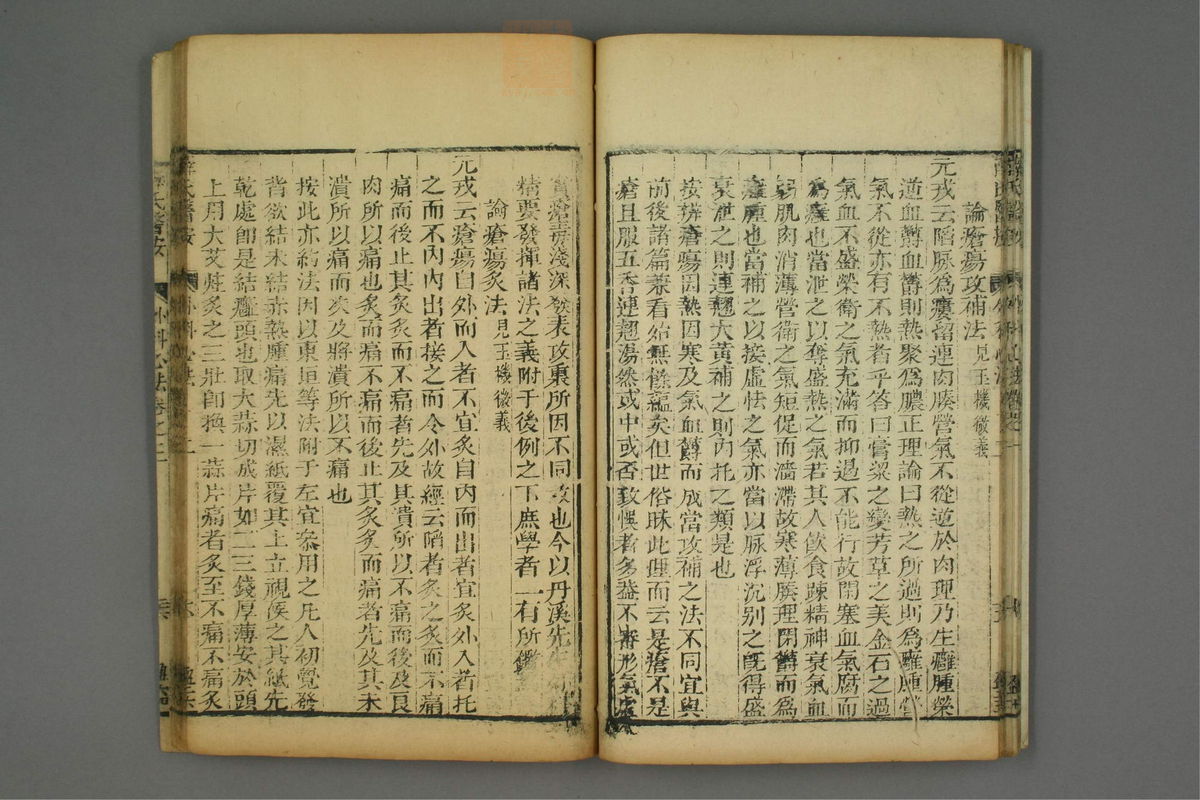 論瘡瘍攻補法 見玉機微義
元戎云陷脉為瘻留連肉腠營氣不從逆於肉理乃生癰腫榮
道血鬱血鬱則熱聚為膿正理論曰熱之所過則為癰腫營
氣不從亦有不熱者乎答曰膏粱之變芳草之美金石之過
氣血不盛榮衛之氣充滿而抑遏不能行故閉塞血氣腐而
為癰也當泄之以奪盛熱之氣若其人飲食疎精神衰氣血
弱肌肉消薄營衛之氣短促而濇滯故寒薄腠理閉鬱而為
癰腫也當補之以接虛怯之氣亦當以脉浮沉別之既得盛
衰泄之則連翹大黃補之則內托之類是也
按辨瘡瘍因熱因寒及氣血鬱而成當攻補之法不同宜與
前後諸篇兼看始無餘蘊矣但世俗昧此理而云是瘡不是
瘡且服五香連翹湯然或中或否致悞者多蓋不審形氣處
瘡淺深發表攻裏所因不同故也今以丹溪先生
精要發揮諸法之義附于後例之下庶學者一有所鑑
論瘡瘍灸法 見玉機微義
元戎云瘡瘍自外而入者不宜灸自內而出者宜灸外入者托
之而不內內出者接之而令外故經云陷者灸之灸而不痛
痛而後止其灸灸而不痛者先及其潰所以不痛而後及良
肉所以痛也灸而痛不痛而後止其灸灸而痛者先及其未
潰所以痛而次及將潰所以不痛也
按此亦約法因以東垣等法附于左宜叅用之凡人初覺發
背欲結未結赤熱腫痛先以濕紙覆其上立視候之其紙先
乾處即是結癰頭也取大蒜切成片如二三錢厚薄安於頭
上用大艾炷灸之三壯即換一蒜片痛者灸至不痛不痛灸
薛氏醫按
外科心法 卷之二